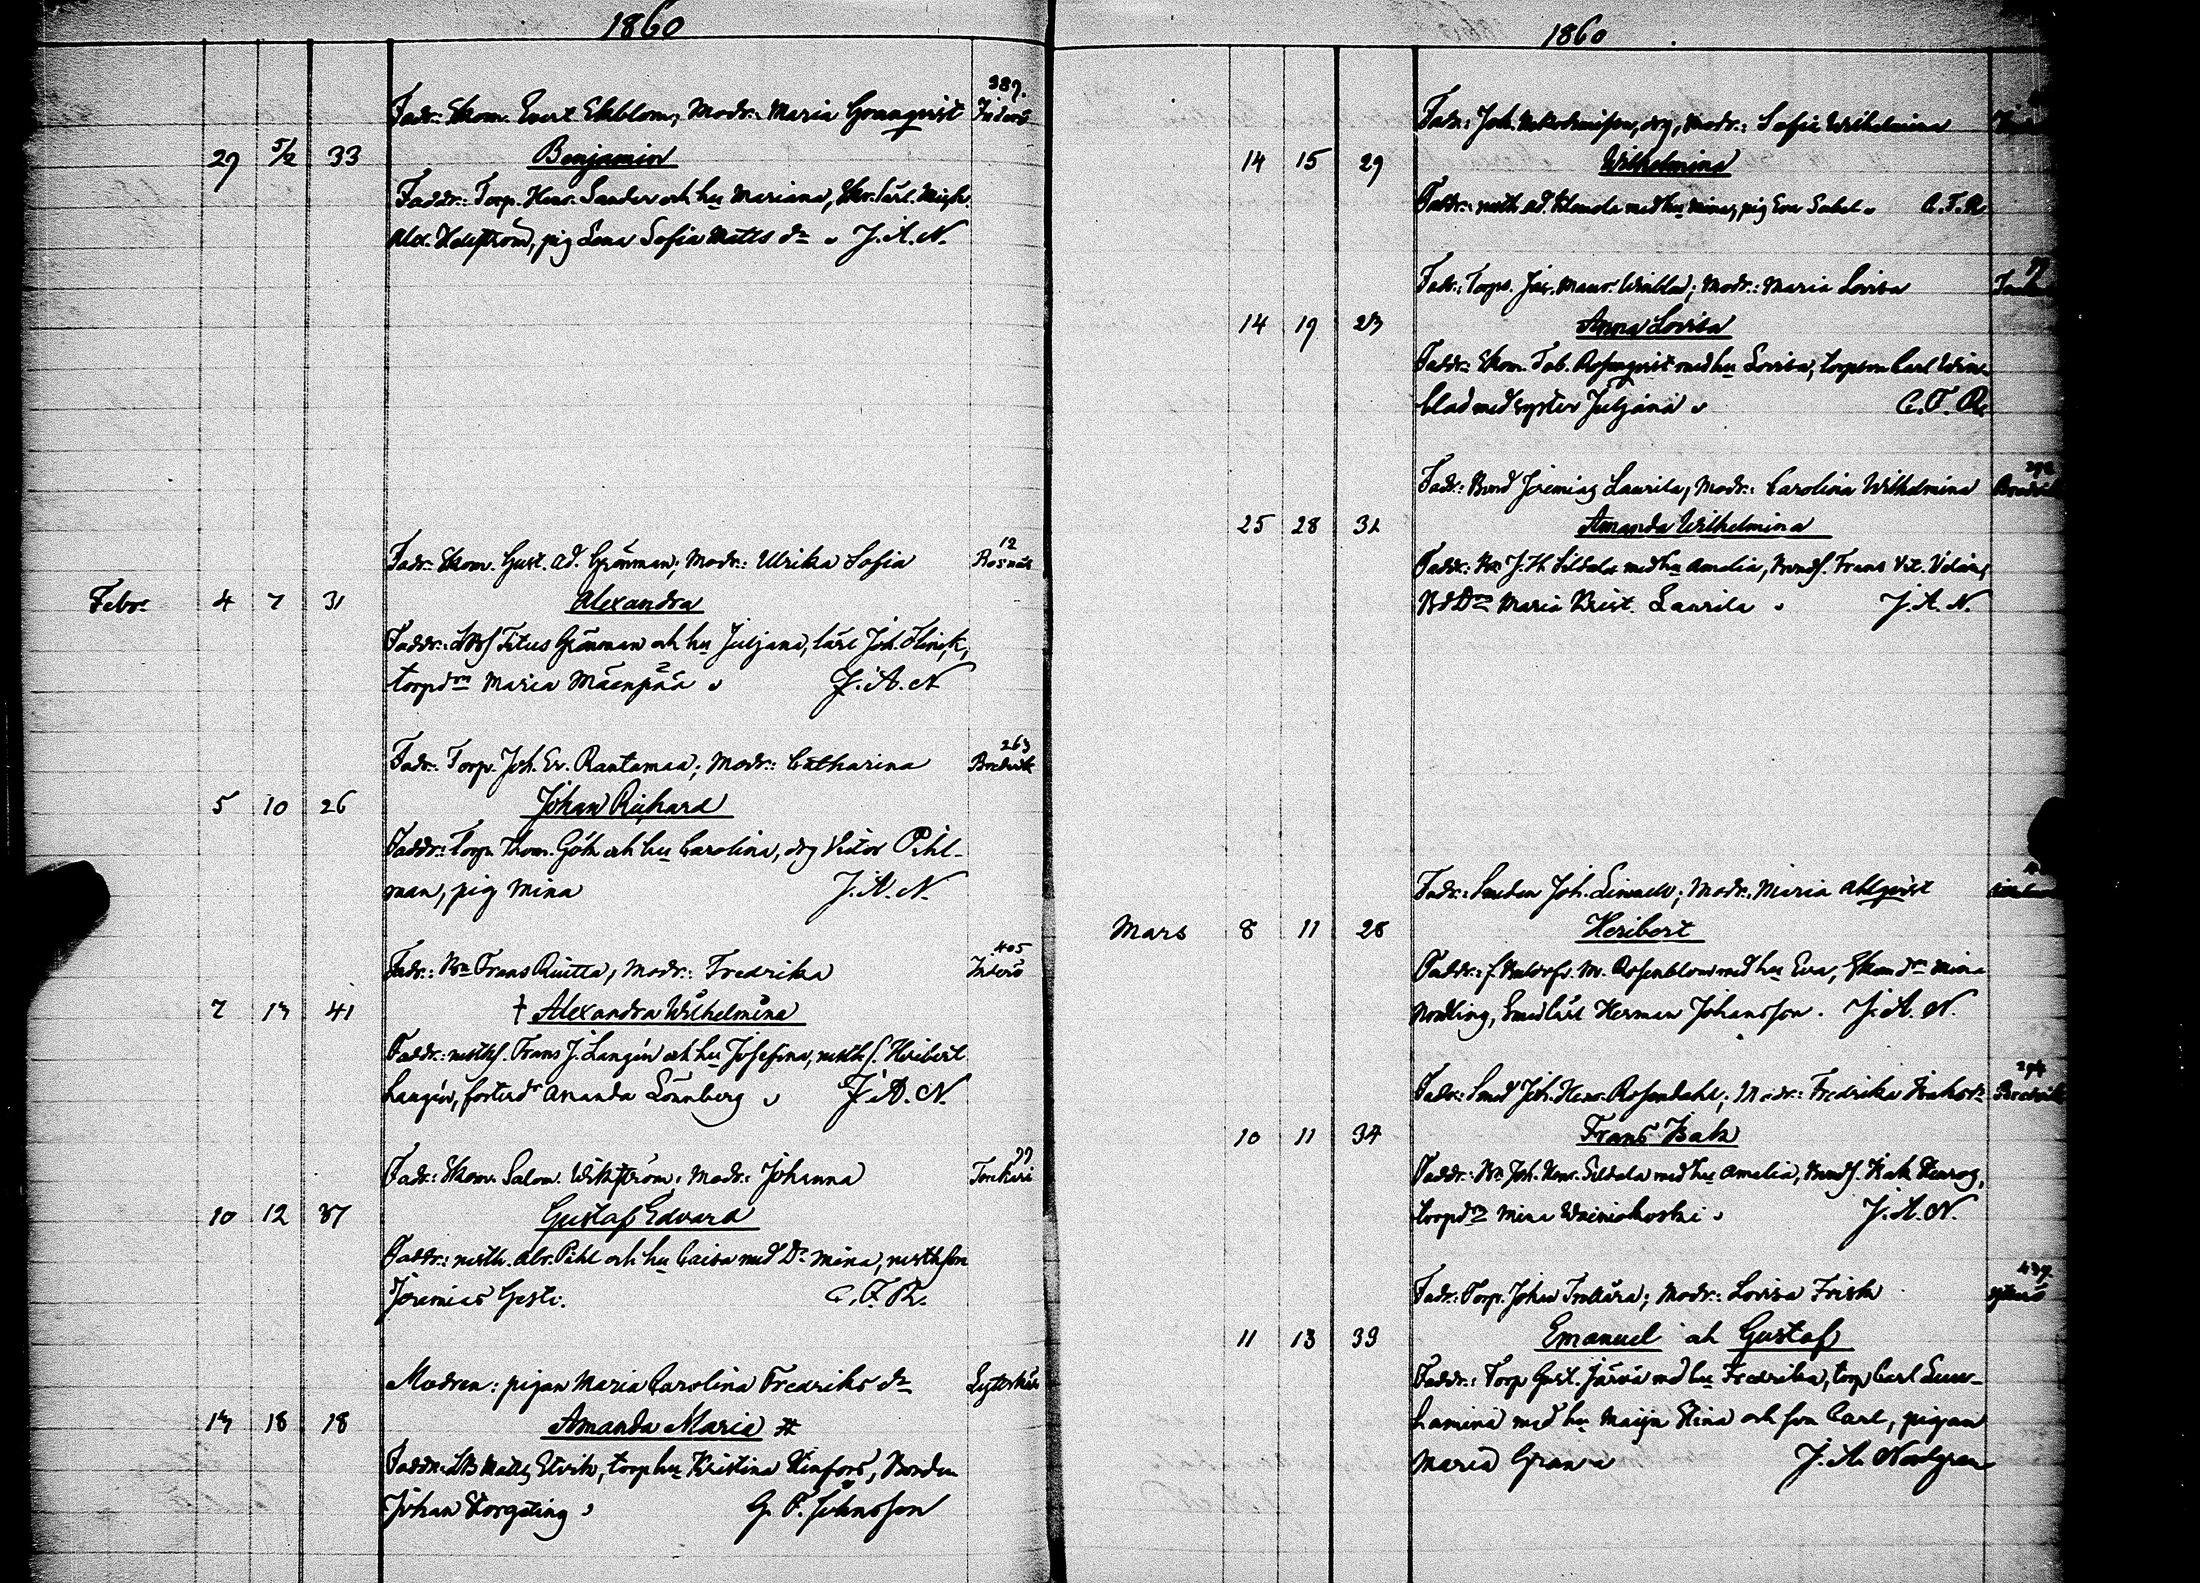 1860
389.
Fadr: Skom. Evert Ekblom, Modr: Maria Grannqvist Inderö
29 5/2 33 Benjamin
Faddr: Torp. Henr. Sander och hu Mariana, Skr. lärl. Mich.
Alex. Holmström, pig Lena Sofia Matts dr J. A. N.
12
Fadr: Skom. Gust. Ad. Grönman; Modr: Ulrika Sofia Rosnäs
Febr. 4 7 31 Alexandra
Faddr: Titus Grönman och hu Juljana, lärl Joh. Flinck,
torpdn Maria Mäenpää J. A. N
263
Fadr: Torp. Joh. Er. Rantamaa; Modr: Catharina Bredvik
5 10 26 Johan Richard
Faddr: Torp. Thom. Göth och hu Carolina, drg Victor Pihl-
man, pig Mina J. A. N.
405
Fadr: Bn Frans Riutta, Modr: Fredrika Inderö
7 13 41 † Alexandra Wilhelmina
Faddr: nisthf. Frans J. Langén och hu Josefina, nisth f. Heribert
Langén, fosterdr Amanda Lönnberg J. A. N.
99
Fadr: Skom. Salom. Wikström; Modr: Johanna Tonkari
10 12 37 Gustaf Edvard
Faddr: nisth. Abr. Pihl och hu Caisa med Dr Mina, nisthson
Jeremias Gestr. C. F. R.
Modren: pigan Maria Carolina Fredriks dr
13 18 18 Amanda Maria #
Faddr: Matts Elvik, torphu Kristina Kinfors, Bonden
Johan Storgeting G. F. Johnsson
1860
Fadr: Joh. drg, Modr: Sofia Wilhelmina
14 15 29 Wilhelmina
Faddr: nisth Ad. med hu Mina, pig Eva Sabel C. F. R
99
Fadr: Torp. Jac. Maur. Winblad; Modr: Maria Lovisa
14 19 23 Anna Lovisa
Faddr: Skom. Tob. Rosenqvist med hu Lovisa, torpson Carl Win-
blad med syster Juljana C. F. R.
Fadr: Bond Jeremias Laurila, Modr: Carolina Wilhelmina Bredvik
25 28 32 Amanda Wilhelmina
Faddr: Bn J. H. Sildala med hu Amalia, Bondf. Frans Vict.
Bd Dr Maria Krist. Laurila J. A. N.
Fadr: Smeden Joh. Linnell; Modr: Maria Ahlqvist
Mars 8 11 28 Heribert
Faddr: M. Rosenblom med hu Eva, Skom dr Mina
Nordling, Smedlärl Herman Johansson. J. A. N.
294
Fadr: Smed Joh. Henr. Rosendahl; Modr: Fredrika Isaksdr Bredvik
10 11 34 Frans Isak
Faddr: Bn Joh. Henr. Sildala med hu Amalia, Bondf. Isak
torpdr Mina Wainiokoski J. A. N.
439.
Fadr: Torp. Johan; Modr: Lovisa Frisk
11 13 39 Emanuel och Gustaf
Faddr: Torp Gust. Järvä med hu Fredrika, torp Carl Luu-
kamina med hu Maija Stina och son Carl, pigan
Maria Gran J. A. Nordgren